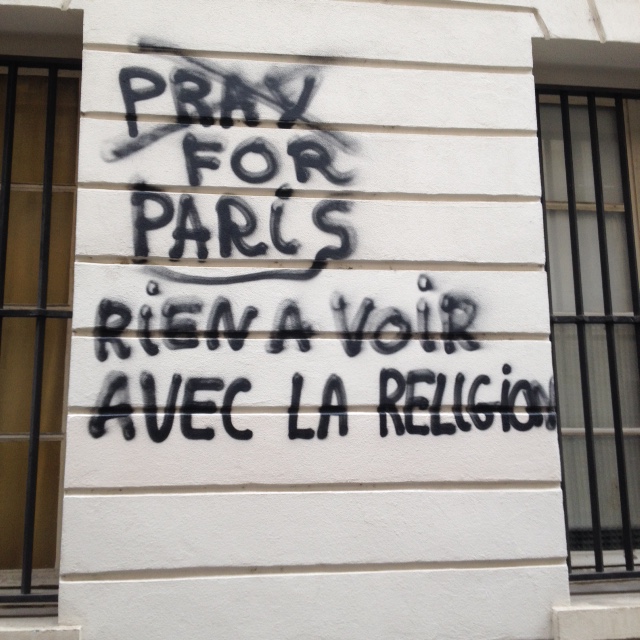 PRAY
FOR
PARiS
RiEN A VOiR
AVEC LA RELIGiON